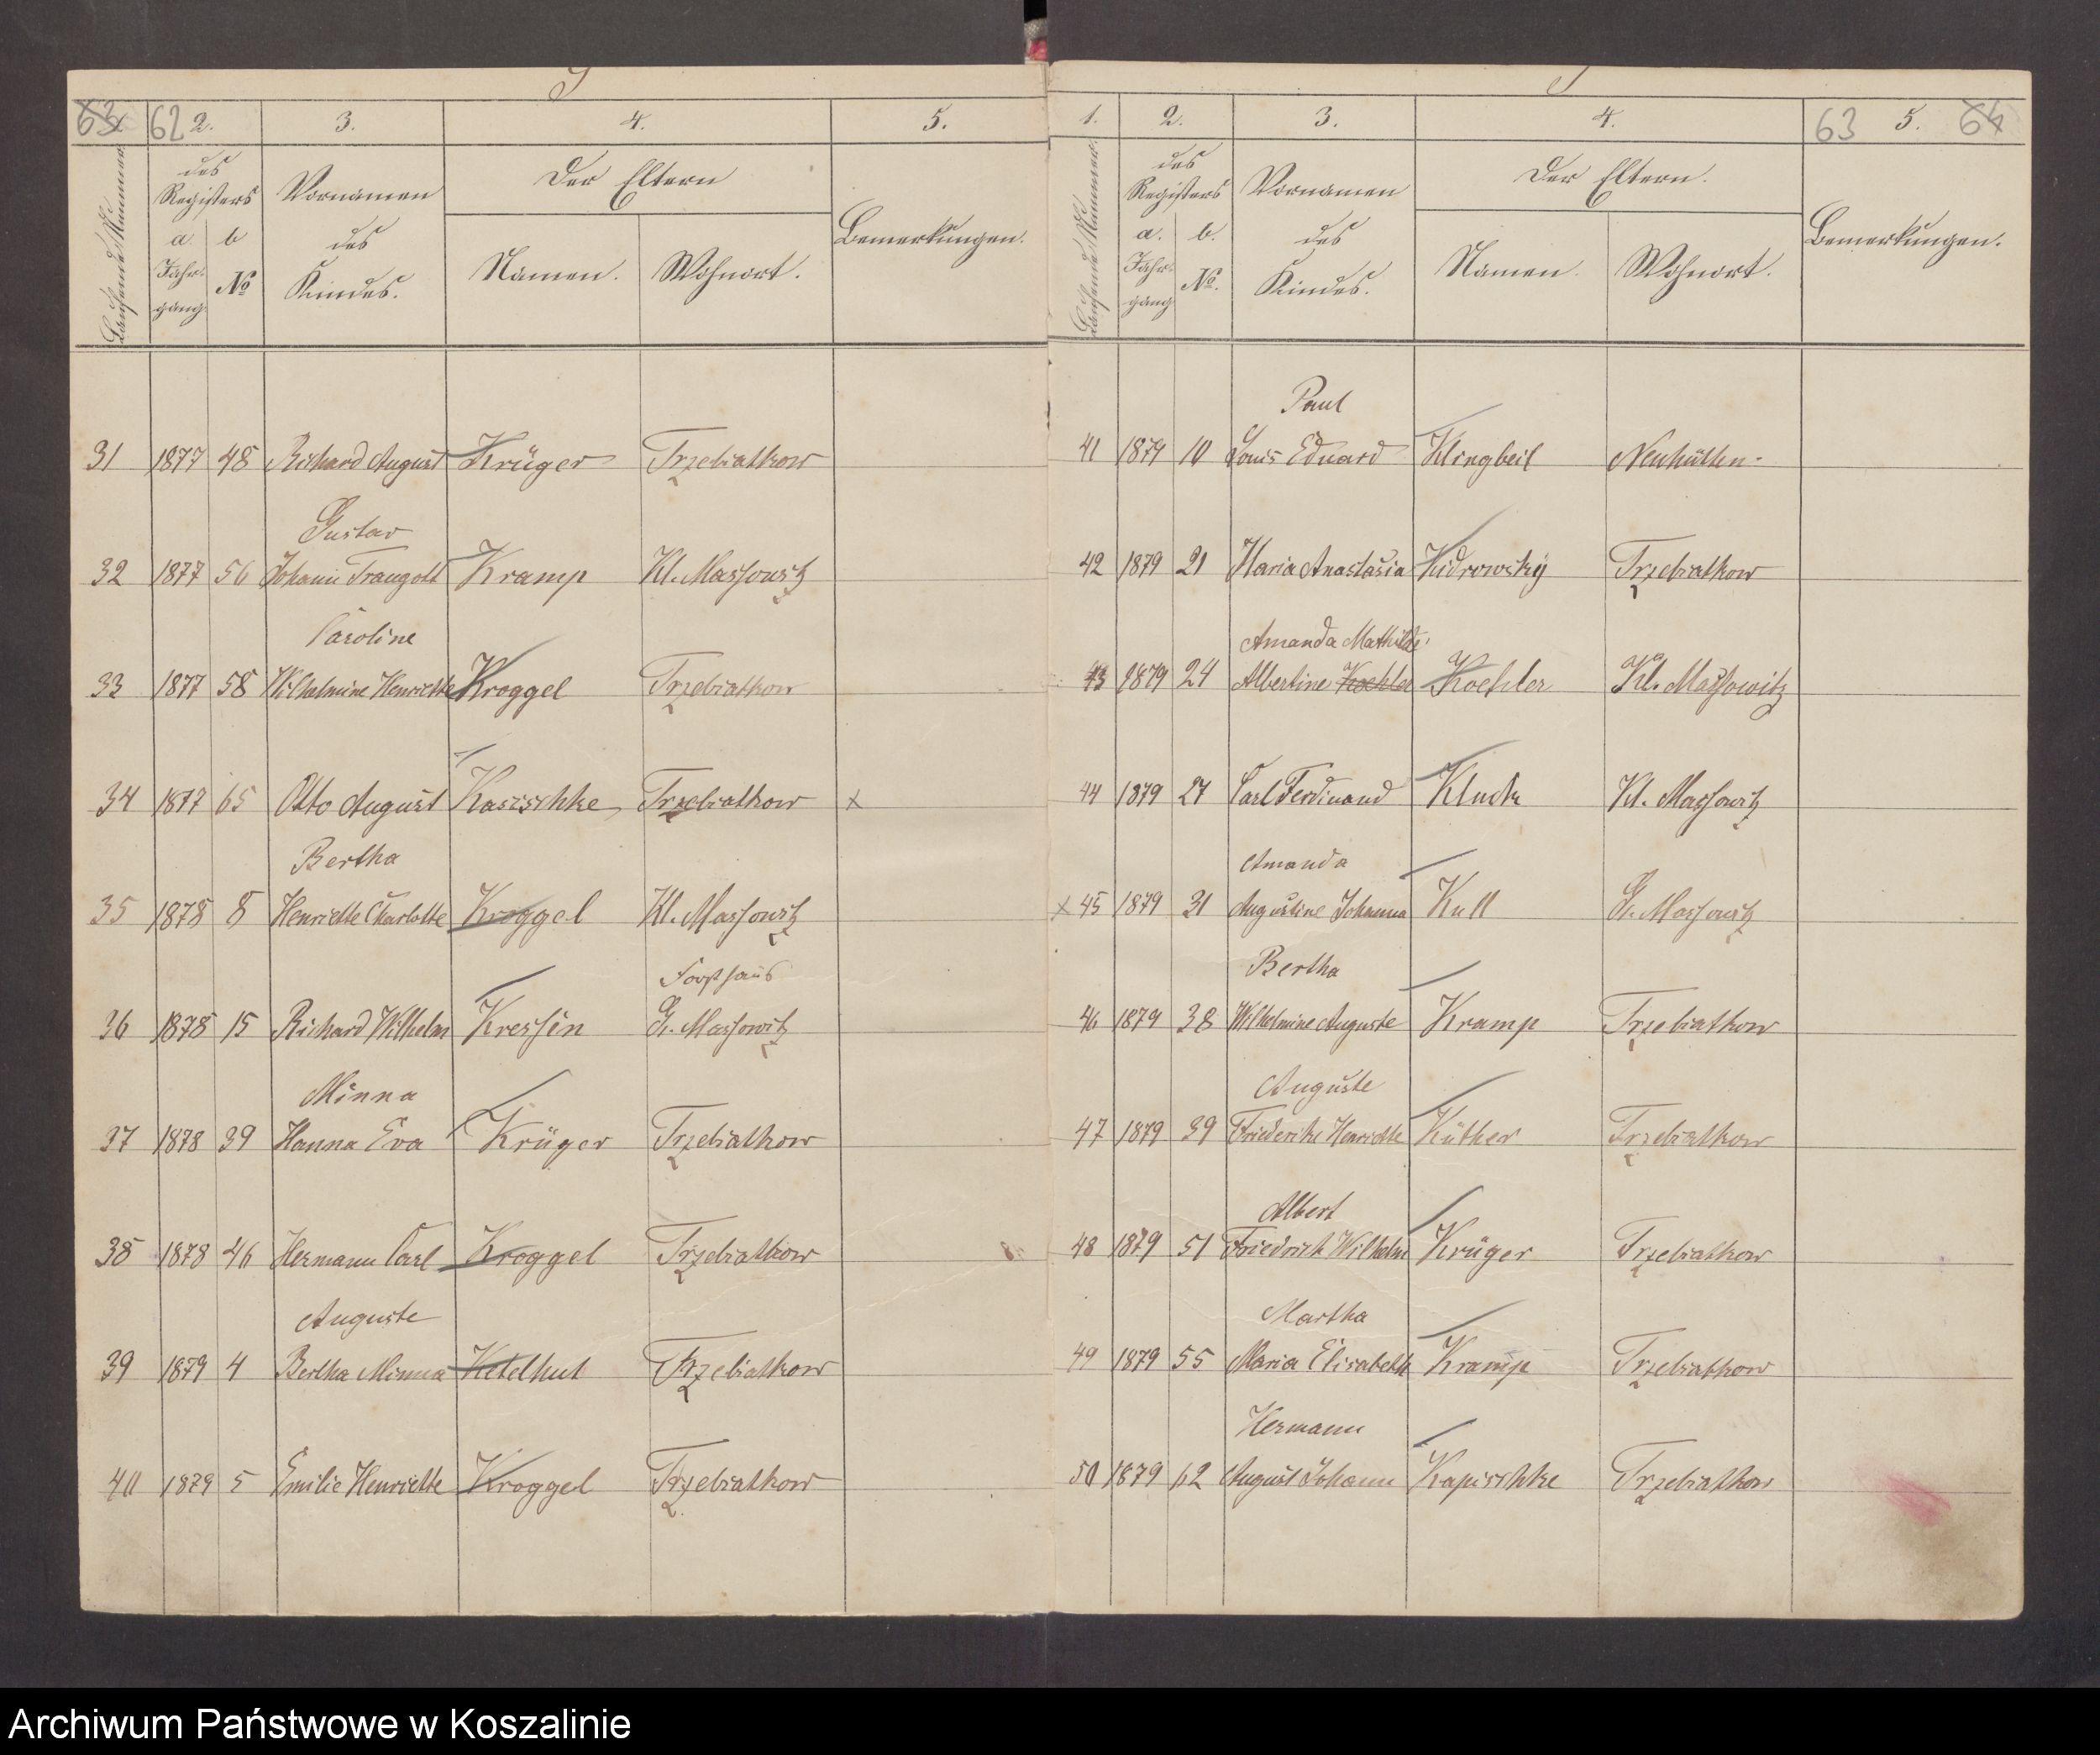 63 62 2. 3. 4. 5.
Laufende Nummer.
des Registers
Vornamen des Kindes.
Der Eltern
Bemerkungen.
a. Jahrgang
b No
Namen. Wohnort.
31 1877 48 Richard August Krüger Trzebiatkow
Gustav
32 1877 56 Johann Traugott Kramp Kl. Massowitz
Caroline
33 1877 58 Wilhelmine Henriette Kroggel Trzebiatkow
34 1877 65 Otto August Trzebiatkow x
Bertha
35 1878 8 Henriette Charlotte Kroggel Kl. Massowitz
Forsthaus
36 1878 15 Richard Wilhelm Kressin Gr. Massowitz
Minna
37 1878 39 Hanna Eva Krüger Trzebiatkow
38 1878 46 Hermann Carl Kroggel Trzebiatkow
Auguste
39 1879 4 Bertha Minna Ketelhut Trzebiatkow
40 1879 5 Emilie Henriette Kroggel Trzebiatkow
1. 2. 3. 4. 63 5. 64
Laufende Nummer.
des Registers
Vornamen des Kindes.
Der Eltern.
Bemerkungen.
a. Jahrgang
b. No.
Namen. Wohnort.
Paul
41 1879 10 Louis Eduard Klingbeil Neuhütten.
42 1879 21 Maria Anastasia Kidrowsky Trzebiatkow
Amanda Mathilde
43 1879 24 Albertine Koehler Koehler Kl. Massowitz
44 1879 27 Carl Ferdinand Kluck Kl. Massowitz
Amanda
x 45 1879 31 Augustine Johanna Kull Gr. Massowitz
Bertha
46 1879 38 Wilhelmine Auguste Kramp Trzebiatkow
Auguste
47 1879 39 Friederike Henriette Küther Trzebiatkow
Albert
48 1879 51 Friedrich Wilhelm Krüger Trzebiatkow
Martha
49 1879 55 Maria Elisabeth Kramp Trzebiatkow
Hermann
50 1879 62 August Johann Kapischke Trzebiatkow
Archiwum Państwowe w Koszalinie